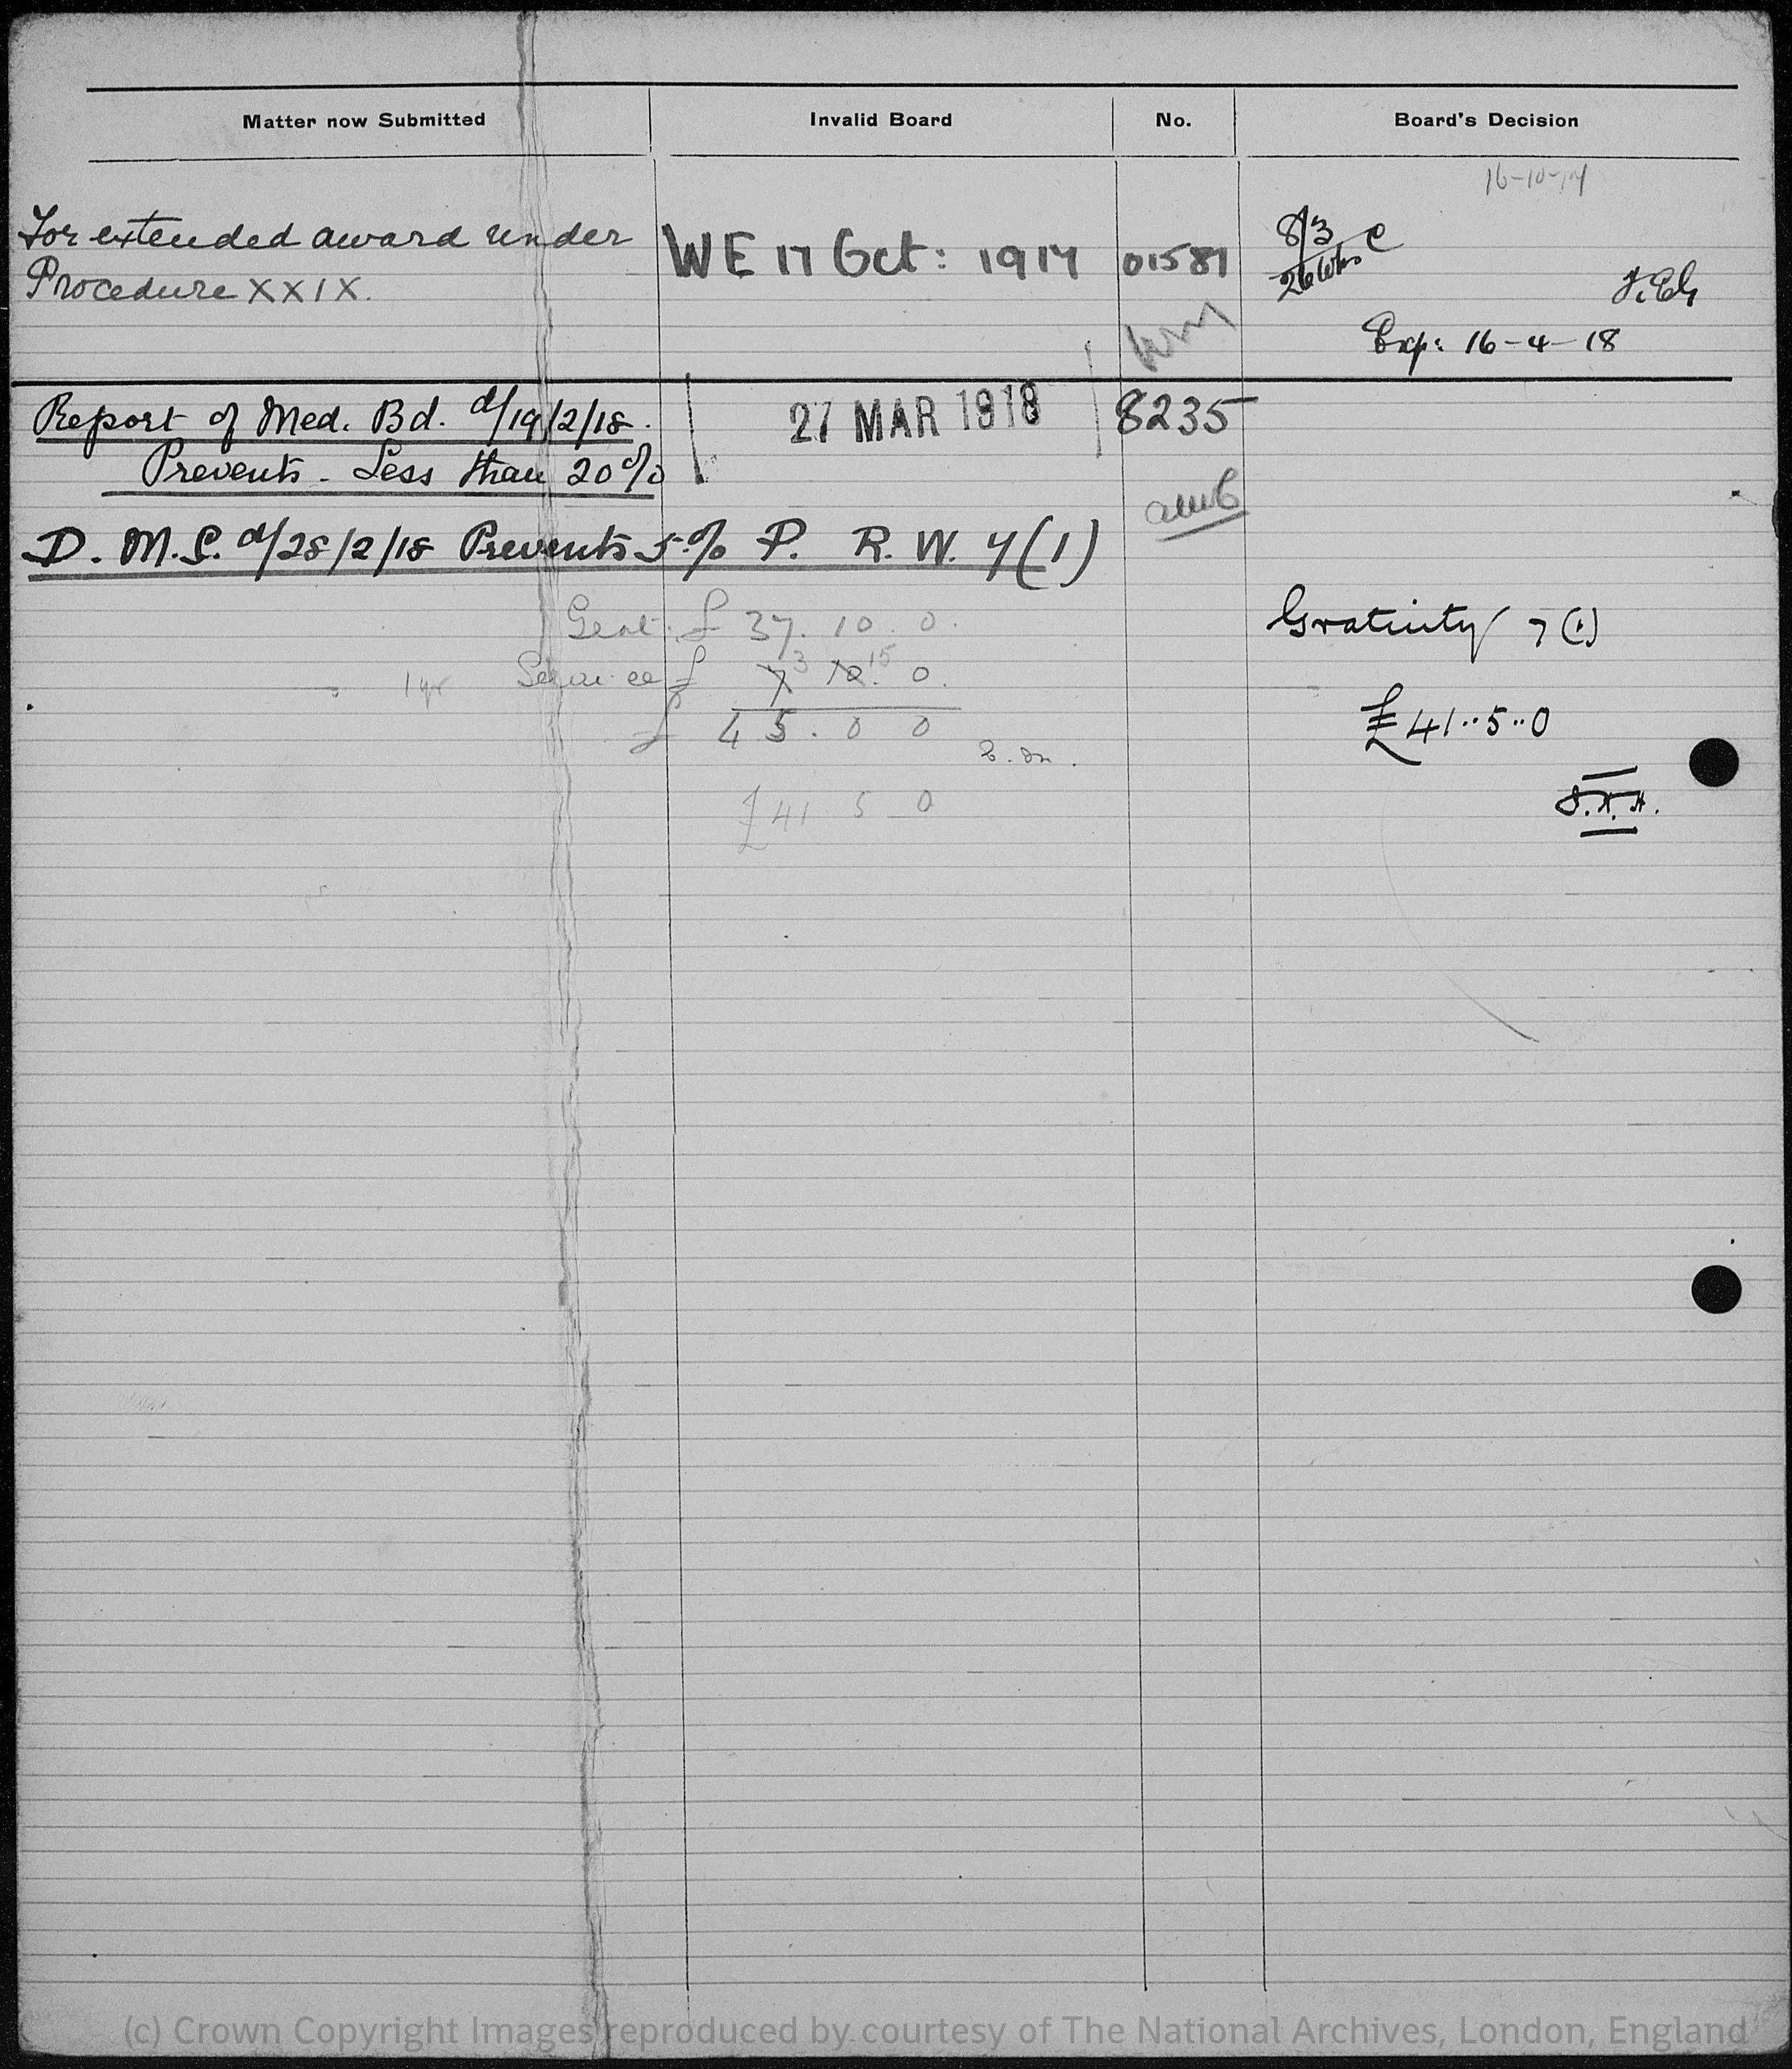 Matter now Submitted Invalid Board No. Board's Decision
16-10-17
For extended award under WE 17 Oct: 1917 01587 8/3 C
Procedure XXIX. 26 Wks
Exp: 16-4-18
Report of Med. Bd. d/19/2/18. 27 MAR 1918 8235
Prevents - Less than 20%
D. M. S. d/28/2/18 Prevents 5% P. R. W. 7(1)
Grat. £ 37. 10. 0. Gratuity 7(1)
1 yr Service £ 7 3 10 15. 0.
£ 45. 0 0 £41..5..0
£41 5 0
(c) Crown Copyright Images reproduced by courtesy of The National Archives, London, England